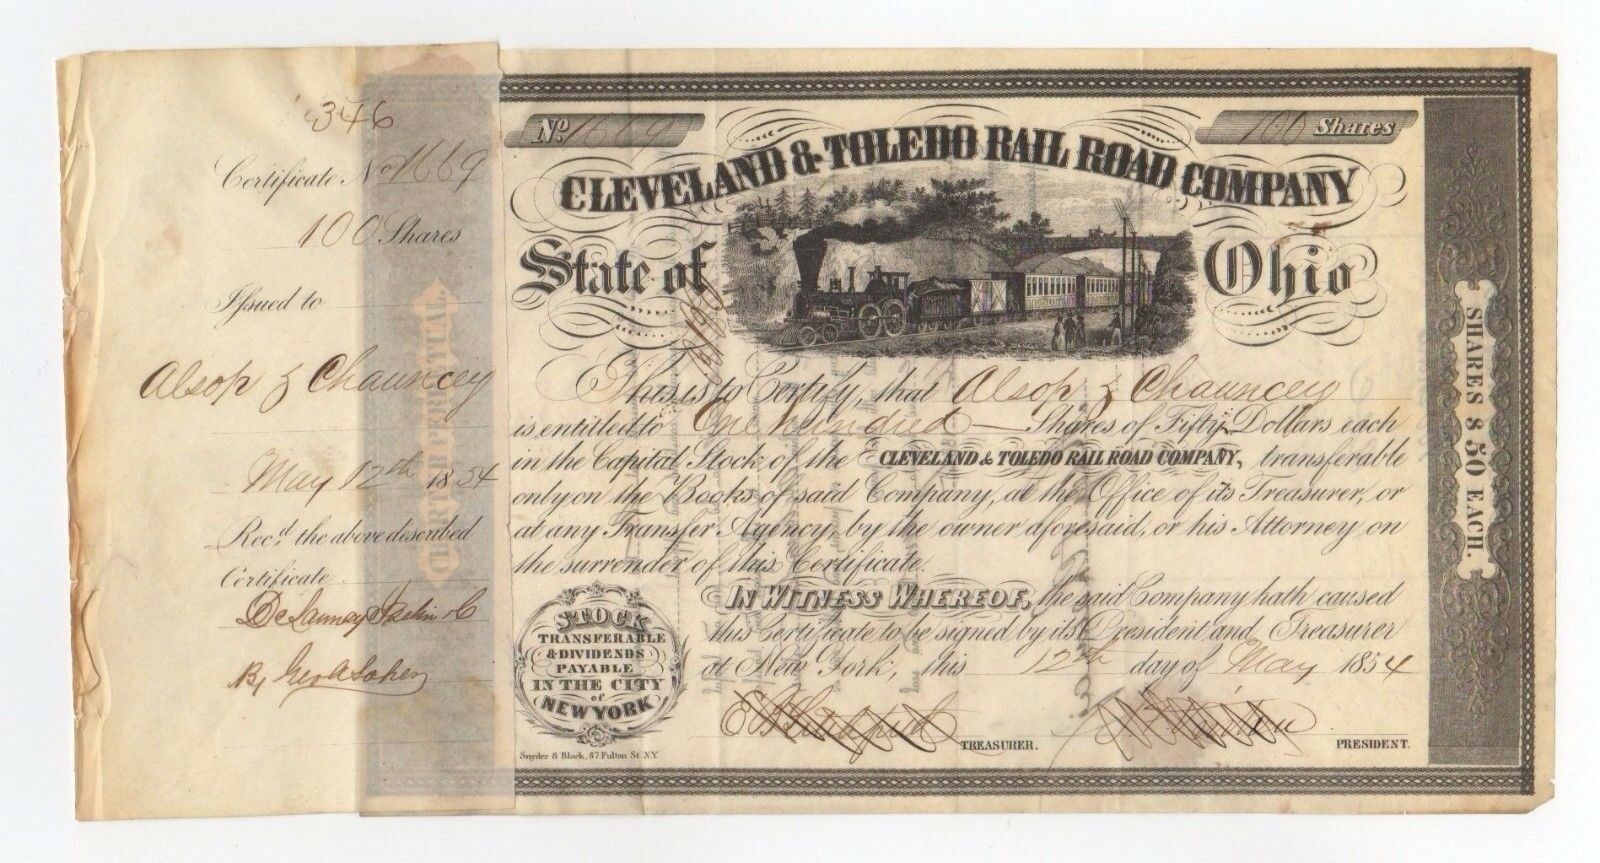 346
Certificate No 1669
100 Shares
Issued to
Alsop & Chauncey
May 12th 1854
Recd. the above described
Certificate
De Launay
By Geo A
CERTIFI PERPETUAL
No. 1669
100 Shares
CLEVELAND & TOLEDO RAIL ROAD COMPANY
State of Ohio
This is to Certify, that Alsop & Chauncey
is entitled to One hundred Shares of Fifty Dollars each
in the Capital Stock of the CLEVELAND & TOLEDO RAIL ROAD COMPANY, transferable
only on the Books of said Company, at the Office of its Treasurer, or
at any Transfer Agency, by the owner aforesaid, or his Attorney on
the surrender of this Certificate.
IN WITNESS WHEREOF, the said Company hath caused
this Certificate to be signed by its President and Treasurer
at New York, this 12th day of May 1854
TREASURER.
PRESIDENT.
STOCK
TRANSFERABLE
& DIVIDENDS
PAYABLE
IN THE CITY
of
NEW YORK
Snyder & Black, 87 Fulton St. N.Y.
SHARES $50 EACH.